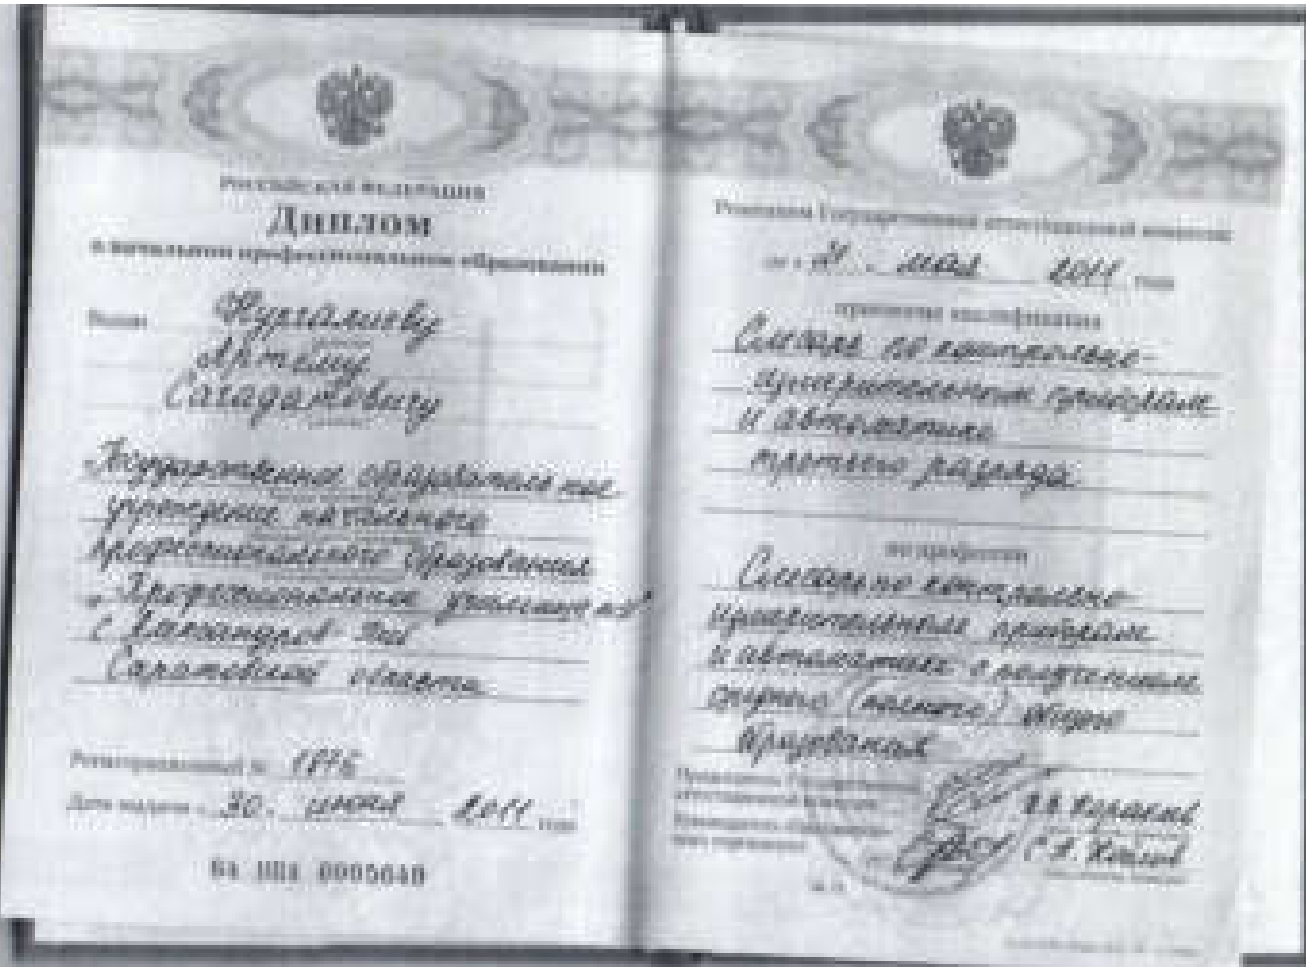 РОССИЙСКАЯ ФЕДЕРАЦИЯ
Диплом
о начальном профессиональном образовании
Выдан Нургалиеву
Артёму
Сагадатовичу
Государственное образовательное
учреждение начального
профессионального образования
"Профессиональное училище
с Александров-Гай
Саратовской области
Регистрационный №
Дата выдачи « 30. июня 2011 года
Решением Государственной аттестационной комиссии
от « мая 2011 года
присвоена квалификация
Слесарь по контрольно-
измерительным приборам
и автоматике
третьего разряда
по профессии
Слесарь по контрольно-
измерительным приборам
и автоматике с получением
среднего (полного) общего
образования
Председатель Государственной
аттестационной комиссии
Руководитель образователь-
ного учреждения
М.П.